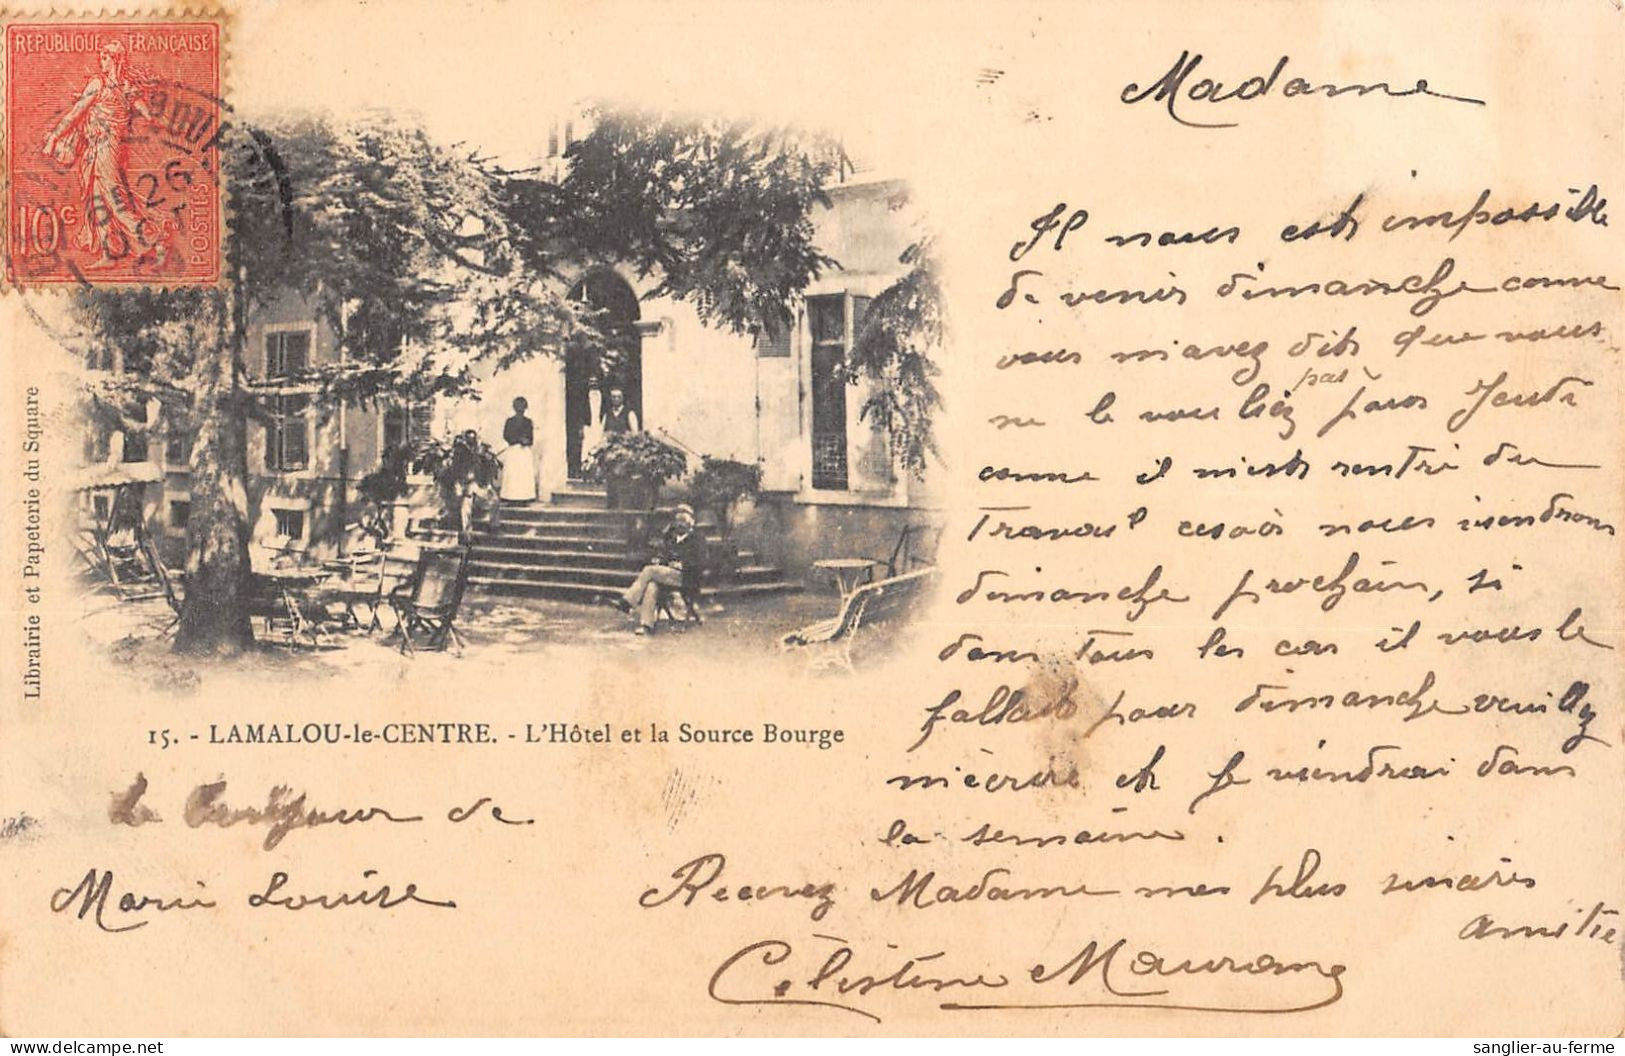 REPUBLIQUE FRANÇAISE
10c
POSTES
26
OCT
Librairie et Papeterie du Square
15. - LAMALOU-le-CENTRE. - L'Hôtel et la Source Bourge
Madame
Il nous est impossible
de venir dimanche comme
vous m'avez dit que vous
pas
ne le vouliez pour Jeudi
comme il n'est rentré du
Travail ce soir nous viendrons
dimanche prochain, si
dans tous les cas il vous le
fallait pour dimanche veuillez
m'écrire et je viendrai dans
la semaine.
Recevez Madame mes plus sincères
amitié
Célestine
Le Bonjour de
Marie Louise
sanglier-au-ferme